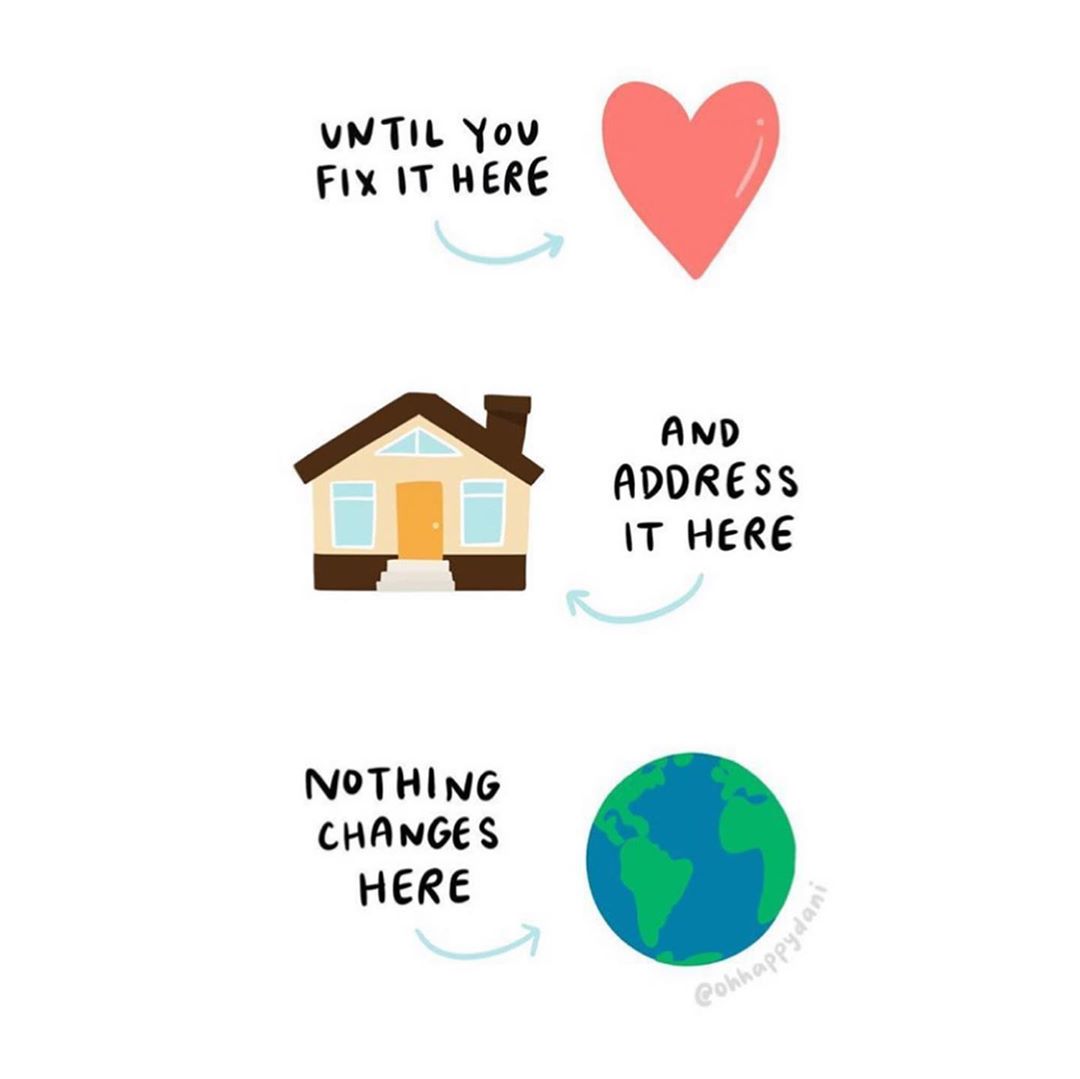 UNTIL YOU
FIX IT HERE
AND
ADDRESS
IT HERE
NOTHING
CHANGES
HERE
@ohhappydani